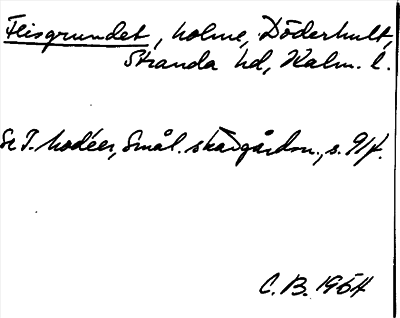 Fleisgrundet, holme, Döderhult,
Stranda hd, Kalm. l.
Se T. Modéer, Smål. skärgårdsn., s. 91f.
C. B. 1964